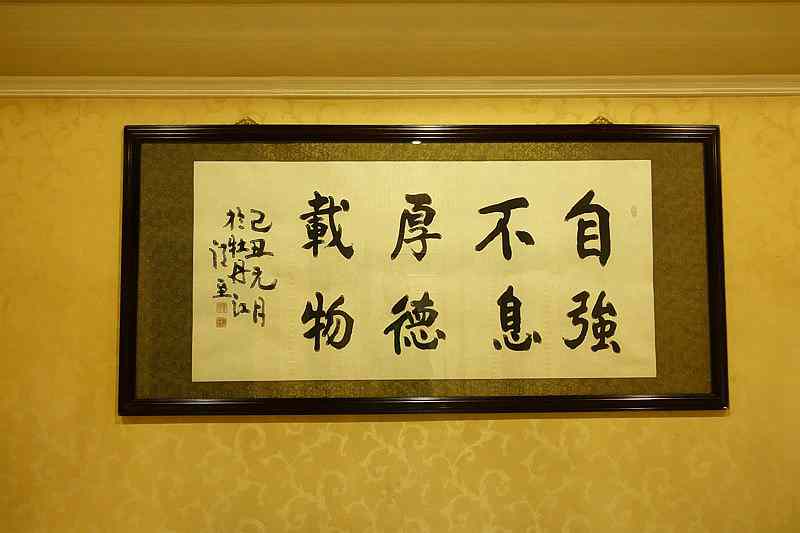 自強
不息
厚德
載物
己丑元月
於牡丹江